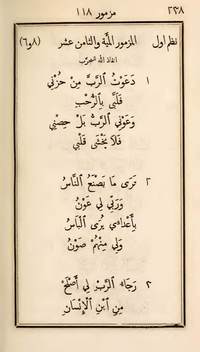 ٢٣٨ مزمور ١١٨
نظم اول المزمور المئة والثامن عشر (٨و٦)
انقاذ الله لمجرب
١ دَعَوْتُ ٱلرَّبَّ مِنْ حُزْنِي
فَلَبَّى بِٱلرُّحْبِ
وَعَوْنِي ٱلرَّبُّ بَلْ حِصْنِي
فَلَا يَخْشَى قَلْبِي
٢ تَرَى مَا يَصْنَعُ ٱلنَّاسُ
وَرَبِّي لِي عَوْنُ
بِأَعْدَاءِي يُرَى ٱلْبَاسُ
وَلِي مِنْهُمْ صَوْنُ
٣ رَجَاءُ ٱلرَّبِّ لِي أَصْلَحْ
مِنِ ٱبْنِ ٱلْإِنْسَانِ